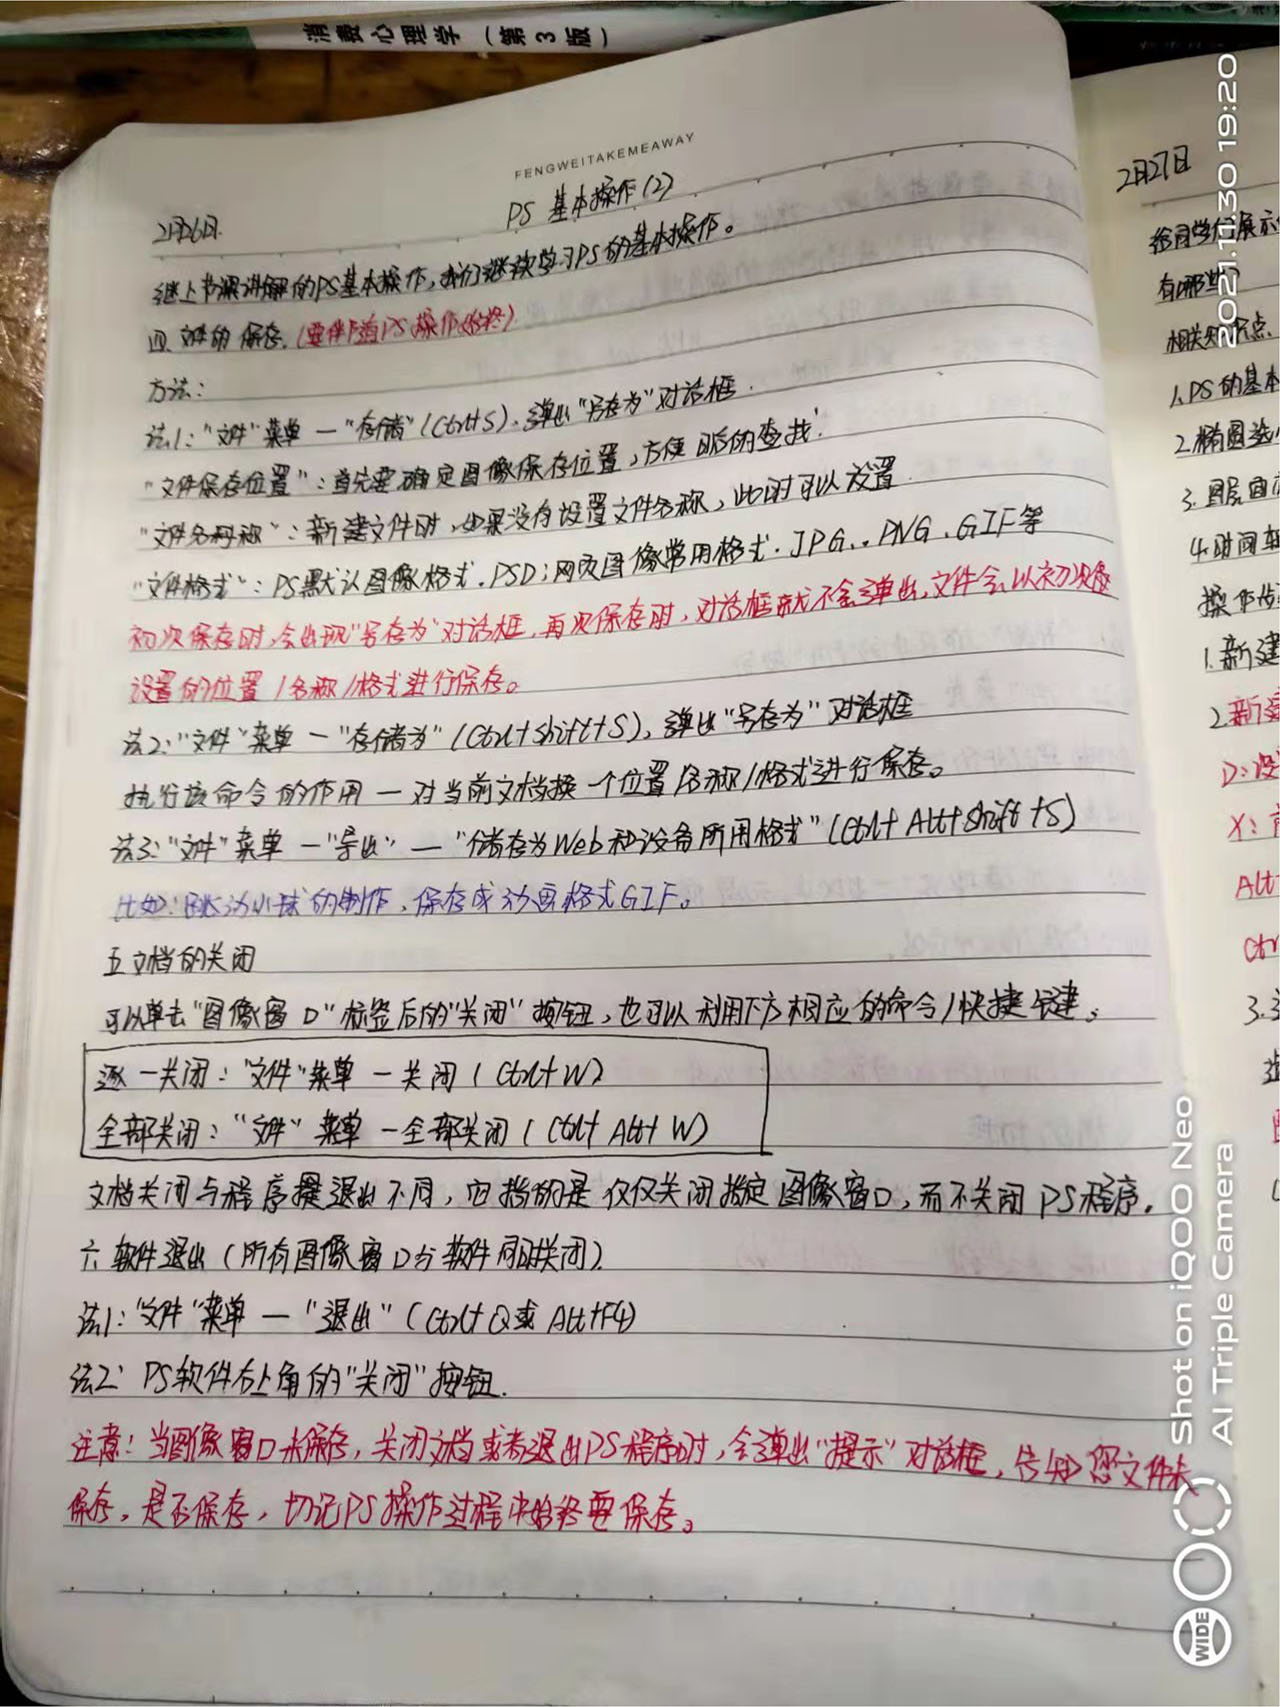 消费心理学（第3版）
FENGWEITAKEMEAWAY
PS 基本操作(2)
2月26日.
继上节课讲解的PS基本操作,我们继续学习PS的基本操作。
四 文件的 保存.(要伴随PS操作始终)
方法:
法1:"文件"菜单 — "存储"(Ctrl+S).弹出"另存为"对话框.
"文件保存位置":首先要确定图像保存位置,方便日后的查找.
"文件名称":新建文件时,如果没有设置文件名称,此时可以设置
"文件格式":PS默认图像格式.PSD;网页图像常用格式.JPG..PNG.GIF等
初次保存时,会出现"另存为"对话框,再次保存时,对话框就不会弹出,文件会以初次
设置的位置/名称/格式进行保存。
法2:"文件"菜单 — "存储为"(Ctrl+shift+S),弹出"另存为"对话框
执行该命令的作用 — 对当前文档换一个位置/名称/格式进行保存。
法3:"文件"菜单 — "导出" — "储存为Web和设备所用格式"(Ctrl+Alt+shift+S)
比如:跳动小球的制作,保存成动画格式GIF。
五 文档的关闭
可以单击"图像窗口"标签后的"关闭"按钮,也可以利用下方相应的命令/快捷键。
逐一关闭:"文件"菜单 — 关闭(Ctrl+W)
全部关闭:"文件"菜单 — 全部关闭(Ctrl+Alt+W)
文档关闭与程序退出不同,它指的是仅仅关闭指定图像窗口,而不关闭PS程序.
六 软件退出(所有图像窗口与软件同时关闭)
法1:"文件"菜单 — "退出"(Ctrl+Q或Alt+F4)
法2: PS软件右上角的"关闭"按钮.
注意!当图像窗口未保存,关闭文档或者退出PS程序时,会弹出"提示"对话框,告知您文件未
保存,是否保存,切记PS操作过程中始终要保存。
2月27日
给同学们展示
有哪些?
相关知识点
1.PS的基本
2.椭圆选
3.图层面
4.时间轴
操作步
1.新建
2.新建
D:设
X:
Alt
Ctr
3.
2021.11.30 19:20
Shot on iQOO Neo
AI Triple Camera
WIDE